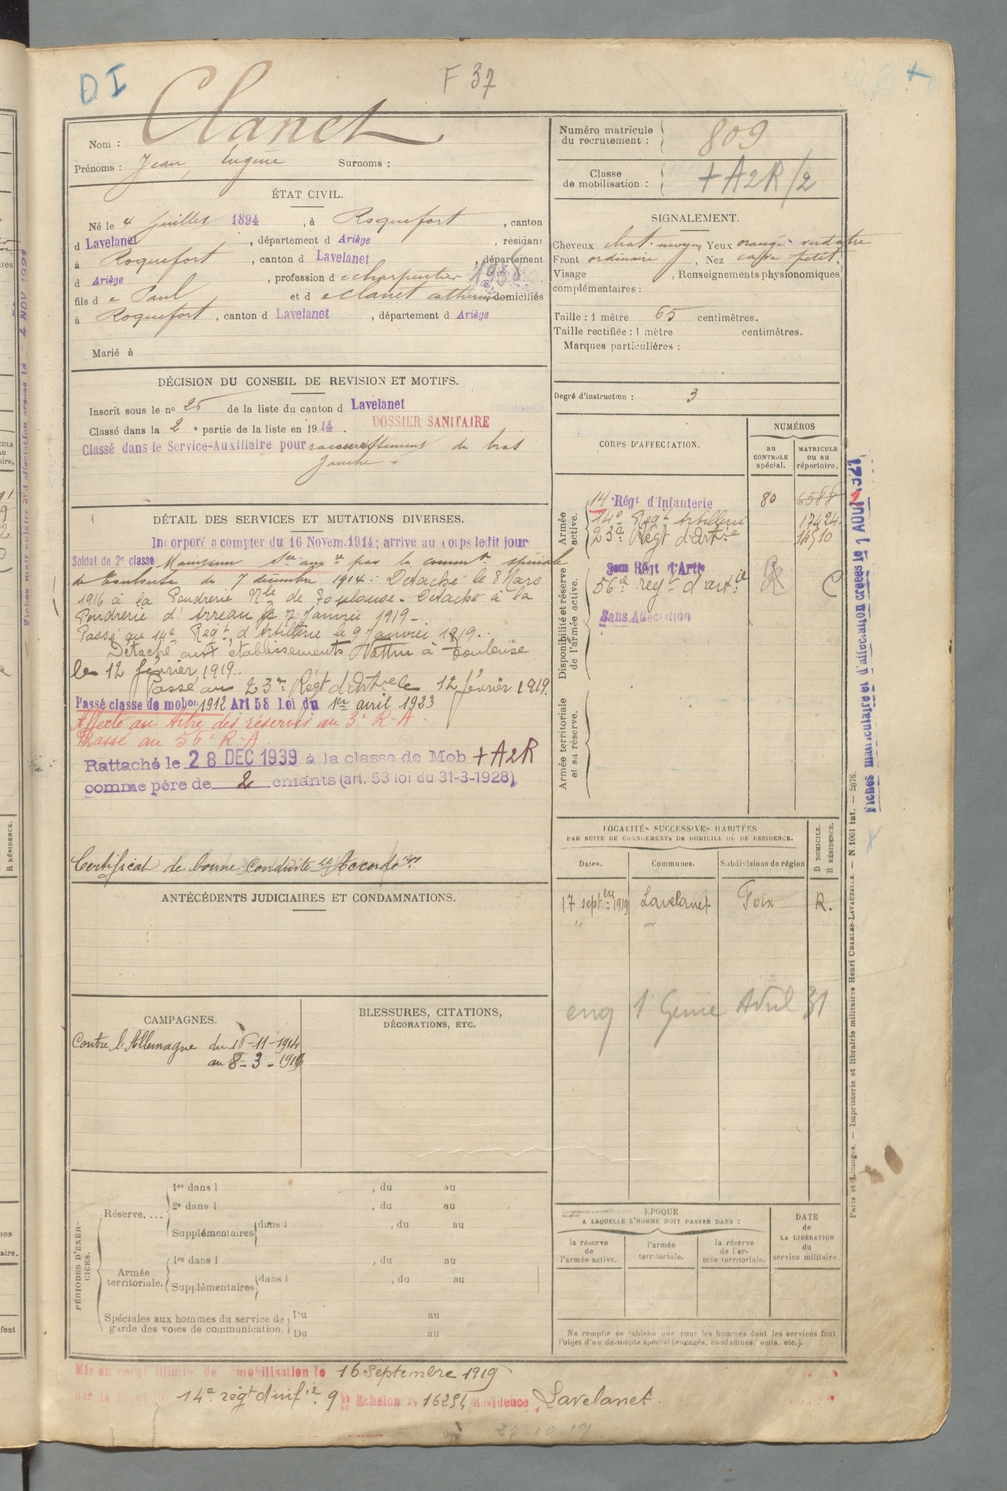 DI
F 37
Nom : Clanet
Prénoms : Jean, Eugène Surnoms :
ÉTAT CIVIL.
Né le 4 juillet 1894, à Roquefort, canton
d Lavelanet, département d Ariège, résidant
à Roquefort, canton d Lavelanet, département
d Ariège, profession de charpentier
fils de Paul et de Clanet domiciliés
à Roquefort, canton d Lavelanet, département d Ariège
Marié à
DÉCISION DU CONSEIL DE REVISION ET MOTIFS.
Inscrit sous le no 25 de la liste du canton d Lavelanet
Classé dans la 2e partie de la liste en 1914. DOSSIER SANITAIRE
Classé dans le Service-Auxiliaire pour raccourcissement du bras
gauche.
DÉTAIL DES SERVICES ET MUTATIONS DIVERSES.
Incorporé à compter du 16 Novem. 1914; arrivé au corps ledit jour
Soldat de 2e classe. Maintenu Sce aux re par la common spéciale
de Toulouse du 7 décembre 1914. Détaché le 8 Mars
1916 à la Poudrerie Nle de Toulouse. Détaché à la
Poudrerie d'Arreau le 7 Janvier 1919.
Passé au 14e Régt d'Artillerie le 9 Janvier 1919.
Détaché aux établissements à Toulouse
le 12 février 1919.
Passé au 23e Régt d'Artie le 12 février 1919.
Passé classe de mobon 1912 Art 58 loi du 1er avril 1923
Affecté au titre des réserves au 3e R.A.
Passé au 56e R.A
Rattaché le 28 DEC 1939 à la classe de Mob + A2R
comme père de 2 enfants (art. 58 loi du 31-3-1928)
Certificat de bonne conduite "Accordé"
ANTÉCÉDENTS JUDICIAIRES ET CONDAMNATIONS.
CAMPAGNES.
Contre l'Allemagne du 16-11-1914
au 8-3-1916
BLESSURES, CITATIONS,
DÉCORATIONS, ETC.
PÉRIODES D'EXERCICES.
Réserve....
1re dans l , du au
2e dans l , du au
Supplémentaires dans l , du au
Armée territoriale.
1re dans l , du au
Supplémentaires dans l , du au
Spéciales aux hommes du service de garde des voies de communication.
Du au
Du au
Numéro matricule du recrutement : 809
Classe de mobilisation : + A2R/2
SIGNALEMENT.
Cheveux chat. moyen Yeux orangé verdâtre
Front ordinaire, Nez petit.
Visage , Renseignements physionomiques
complémentaires :
Taille : 1 mètre 65 centimètres.
Taille rectifiée : 1 mètre centimètres.
Marques particulières :
Degré d'instruction : 3
CORPS D'AFFECTATION.
NUMÉROS
AU CONTRÔLE spécial.
MATRICULE OU AU répertoire.
Armée active.
14e Régt d'Infanterie 80 6588
14e Régt Artillerie 17424
23e Régt d'Artie 14510
Disponibilité et réserve de l'armée active.
Régt d'Artie
56e régt d'artie
Sans Affectation
Armée territoriale et sa réserve.
LOCALITÉS SUCCESSIVES HABITÉES
PAR SUITE DE CHANGEMENTS DE DOMICILE OU DE RÉSIDENCE.
Dates. Communes. Subdivisions de région D DOMICILE. R RÉSIDENCE.
17 septe 1919 Lavelanet Foix R.
1 Génie Avril 31
EPOQUE
A LAQUELLE L'HOMME DOIT PASSER DANS :
la réserve de l'armée active.
l'armée territoriale.
la réserve de l'armée territoriale.
DATE de LA LIBÉRATION du service militaire.
Ne remplir ce tableau que pour les hommes dont les services font
l'objet d'un décompte spécial (engagés, condamnés, omis, etc.).
Mis en congé illimité de démobilisation le 16 Septembre 1919
par le dépôt 14e régt d'infie 9e Echelon no 16254 Résidence Lavelanet.
Fiches matriculaire et d'affectation créées le 1 AOUT 1927
Paris et Limoges. — Imprimerie et librairie militaires Henri CHARLES-LAVAUZELLE. — N. 1001 int. — 2976.